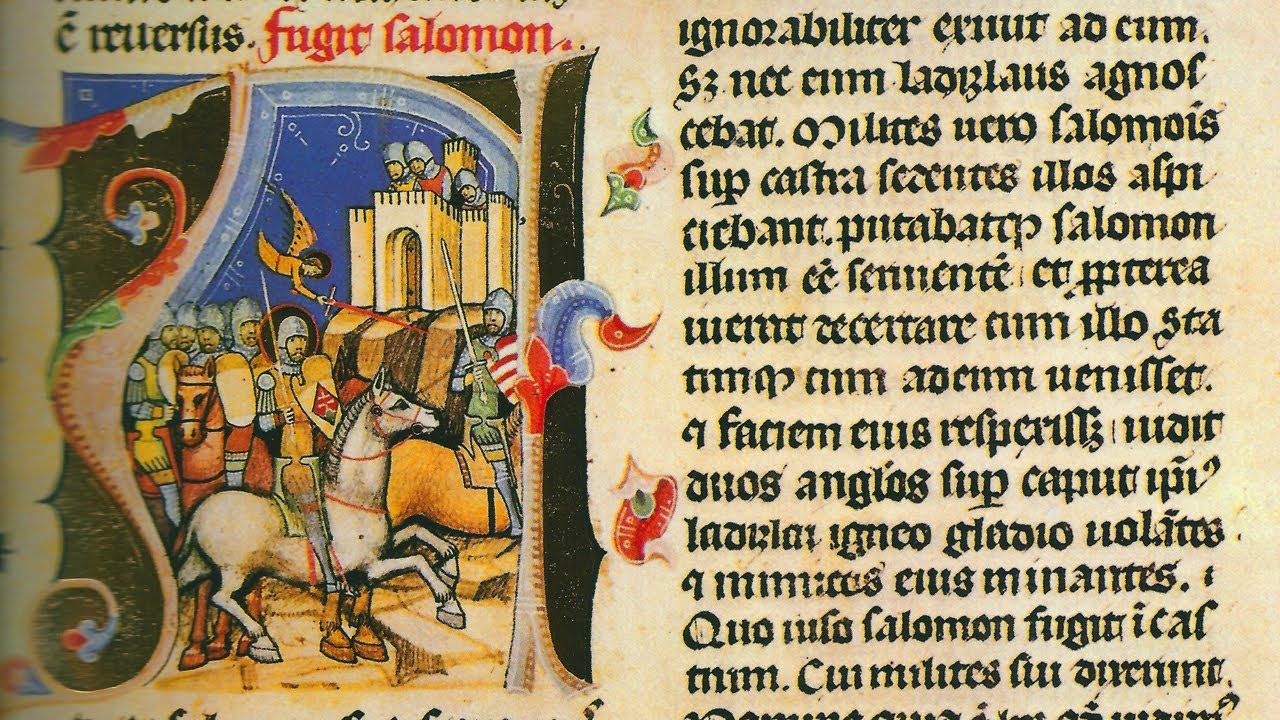 ē reuersus. fugit salomon.
ignorabiliter exiuit ad eum.
Sz nec eum ladizlaus agnos
cebat. Milites uero salomōis
sup castra sedentes illos aspi
ciebant. putabatq salomon
illum eē seruientē et ppterea
uenit decertare cum illo Sta
timq cum ad eum uenisset.
faciem eius respexissz uidit
duos anglōs sup caput ipi
ladizlai igneo gladio uolātes
inimicos eius minantes.
Quo uiso salomon fugit ī cas
trum. Cui milites sui dixerunt